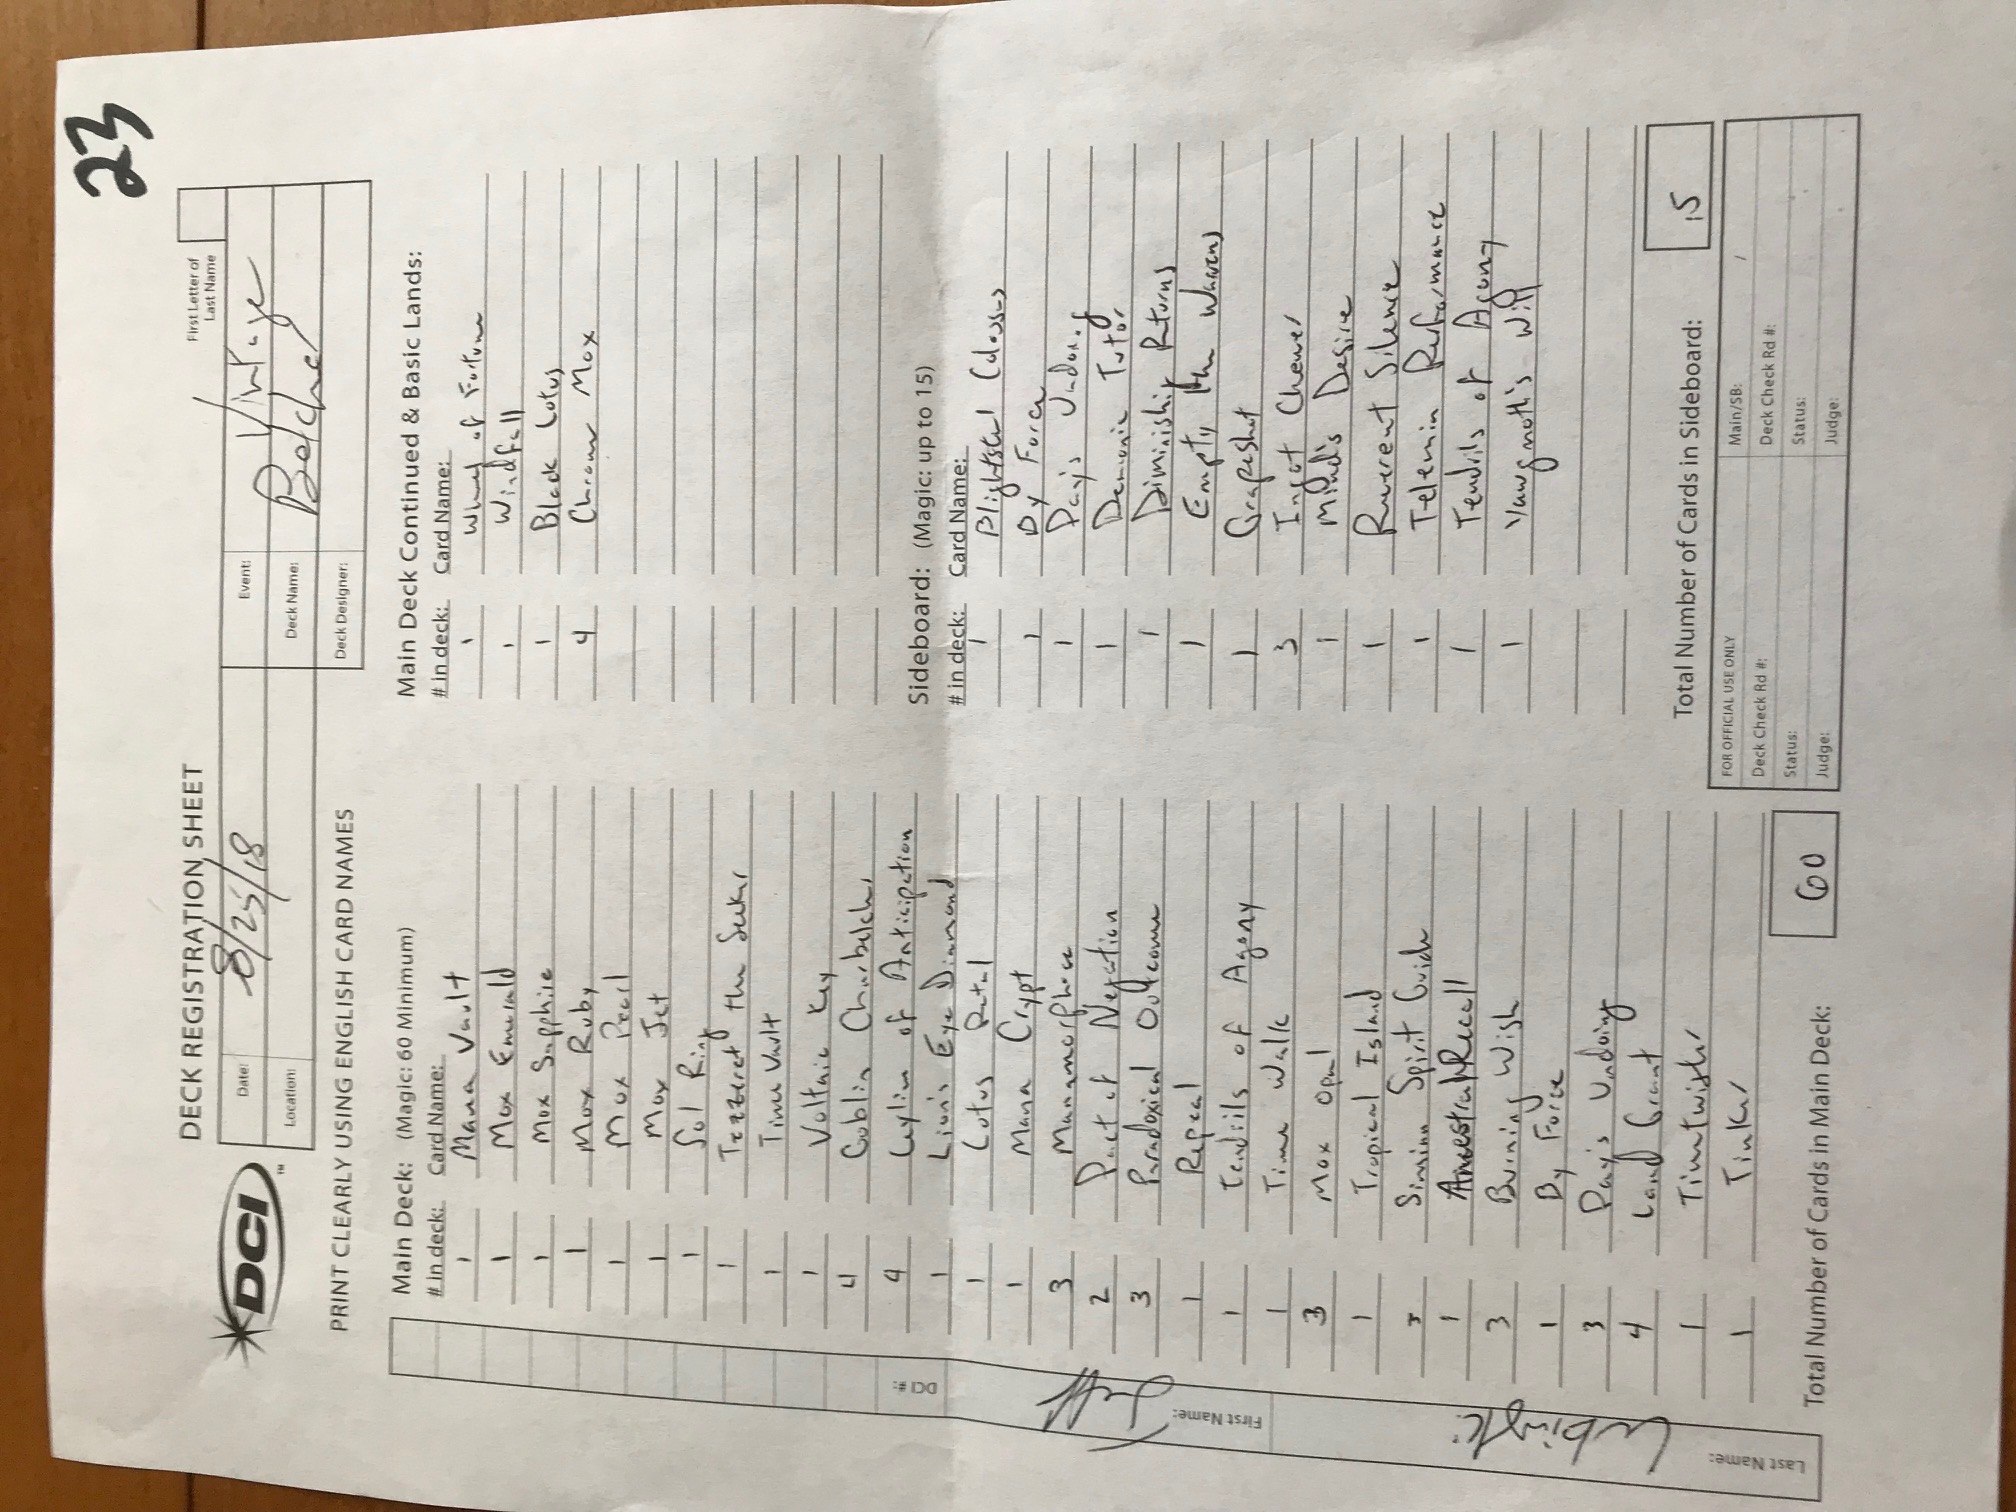 23
DECK REGISTRATION SHEET
First Letter of
Last Name
DCI
TM
Date: 8/25/18
Event: Vintage
Location:
Deck Name: Belcher
Deck Designer:
PRINT CLEARLY USING ENGLISH CARD NAMES
Main Deck: (Magic: 60 Minimum)
# in deck: Card Name:
1 Mana Vault
1 Mox Emerald
1 Mox Sapphire
1 Mox Ruby
1 Mox Pearl
1 Mox Jet
1 Sol Ring
1 Tezzeret the Seeker
1 Time Vault
1 Voltaic Key
4 Goblin Charbelcher
4 Leyline of Anticipation
1 Lion's Eye Diamond
1 Lotus Petal
1 Mana Crypt
3 Manamorphose
2 Pact of Negation
3 Paradoxical Outcome
1 Repeal
1 Tendrils of Agony
1 Time Walk
3 Mox Opal
1 Tropical Island
Simian Spirit Guide
1 Ancestral Recall
3 Burning Wish
1 By Force
3 Day's Undoing
4 Land Grant
1 Timetwister
1 Tinker
Total Number of Cards in Main Deck: 60
Main Deck Continued & Basic Lands:
# in deck: Card Name:
1 Wheel of Fortune
1 Windfall
1 Black Lotus
4 Chrome Mox
Sideboard: (Magic: up to 15)
# in deck: Card Name:
1 Blightsteel Colossus
1 By Force
1 Day's Undoing
1 Demonic Tutor
1 Diminishing Returns
1 Empty the Warrens
1 Grapeshot
3 Ingot Chewer
1 Mind's Desire
1 Reverent Silence
1 Telemin Performance
1 Tendrils of Agony
1 Yawgmoth's Will
Total Number of Cards in Sideboard: 15
FOR OFFICIAL USE ONLY
Main/SB: /
Deck Check Rd #:
Deck Check Rd #:
Status:
Status:
Judge:
Judge:
DCI #:
First Name: Jeff
Last Name: